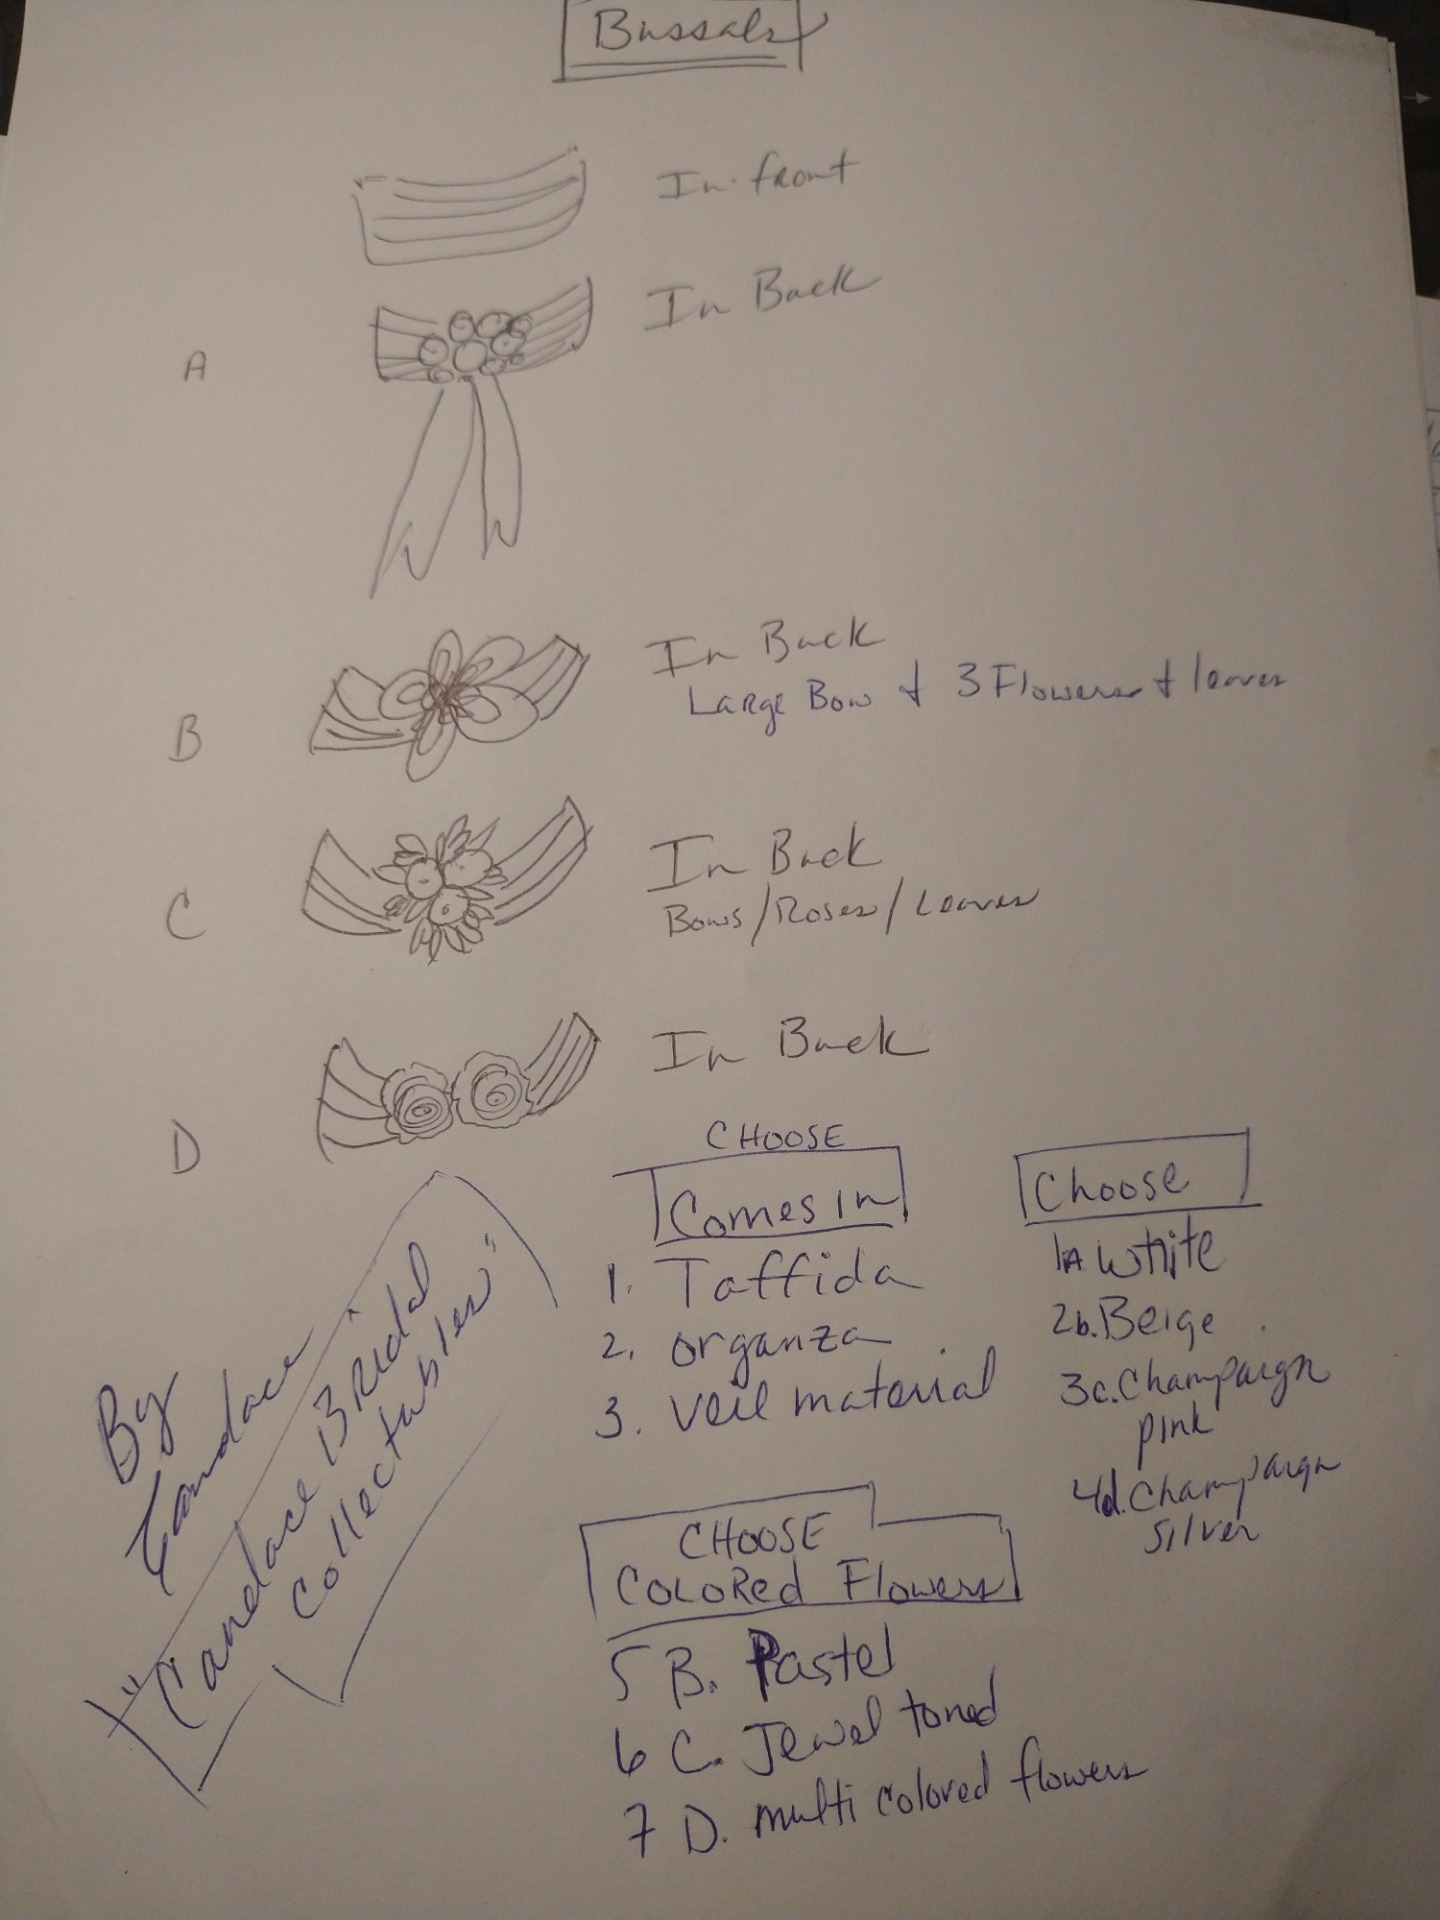 Bussals
In front
In Back
A
In Back
Large Bow & 3 Flowers & leaves
B
In Back
Bows/Roses/Leaves
C
In Back
D
CHOOSE
Comes in
1. Taffida
2. organza
3. Veil material
Choose
1A White
2b. Beige
3c. Champaign
pink
4d. Champaign
Silver
CHOOSE
COLORed Flowers
5 B. Pastel
6 C. Jewel toned
7 D. multi colored flowers
By
Candace
"Candace BRidal
Collectables"